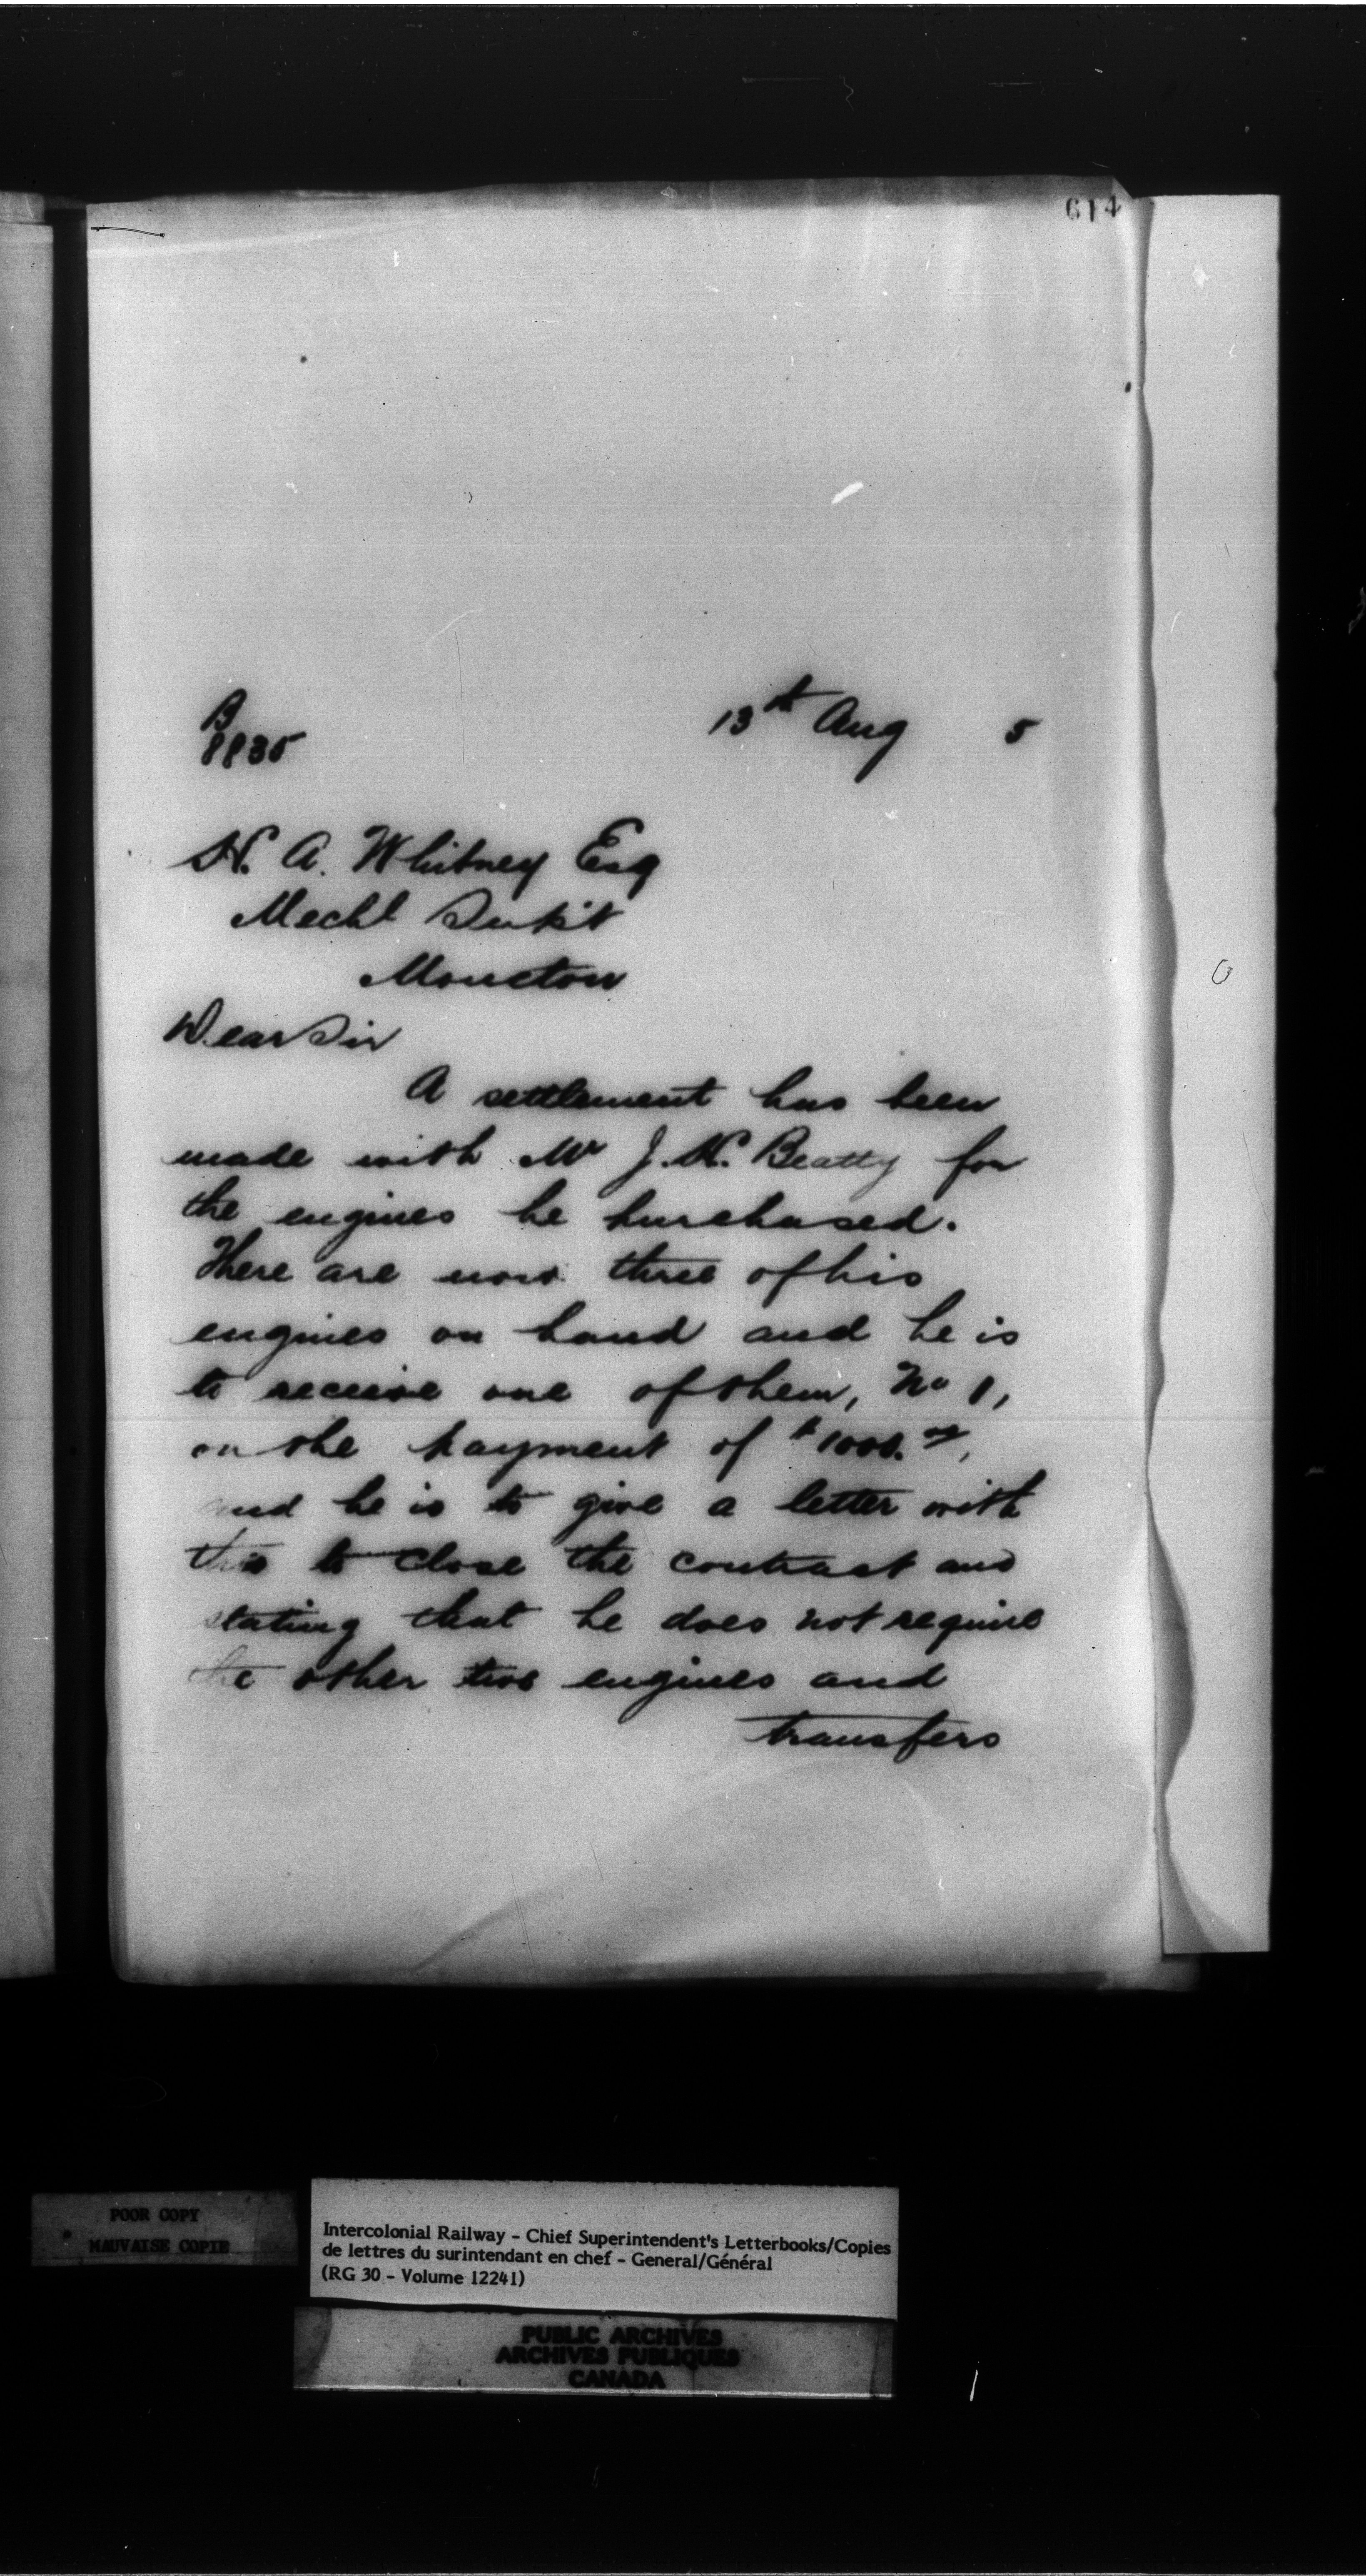 614
13th Aug 5
B
8835
H. A. Whitney Esq
Mechl Supt
Moncton
Dear Sir
A settlement has been
made with Mr J. H. Beatty for
the engines he purchased.
There are now three of his
engines on hand and he is
to receive one of them, No 1,
on the payment of $1000.00,
and he is to give a letter with
this to close the contract and
stating that he does not require
the other two engines and
transfers
POOR COPY
MAUVAISE COPIE
Intercolonial Railway - Chief Superintendent's Letterbooks/Copies
de lettres du surintendant en chef - General/Général
(RG 30 - Volume 12241)
PUBLIC ARCHIVES
ARCHIVES PUBLIQUES
CANADA